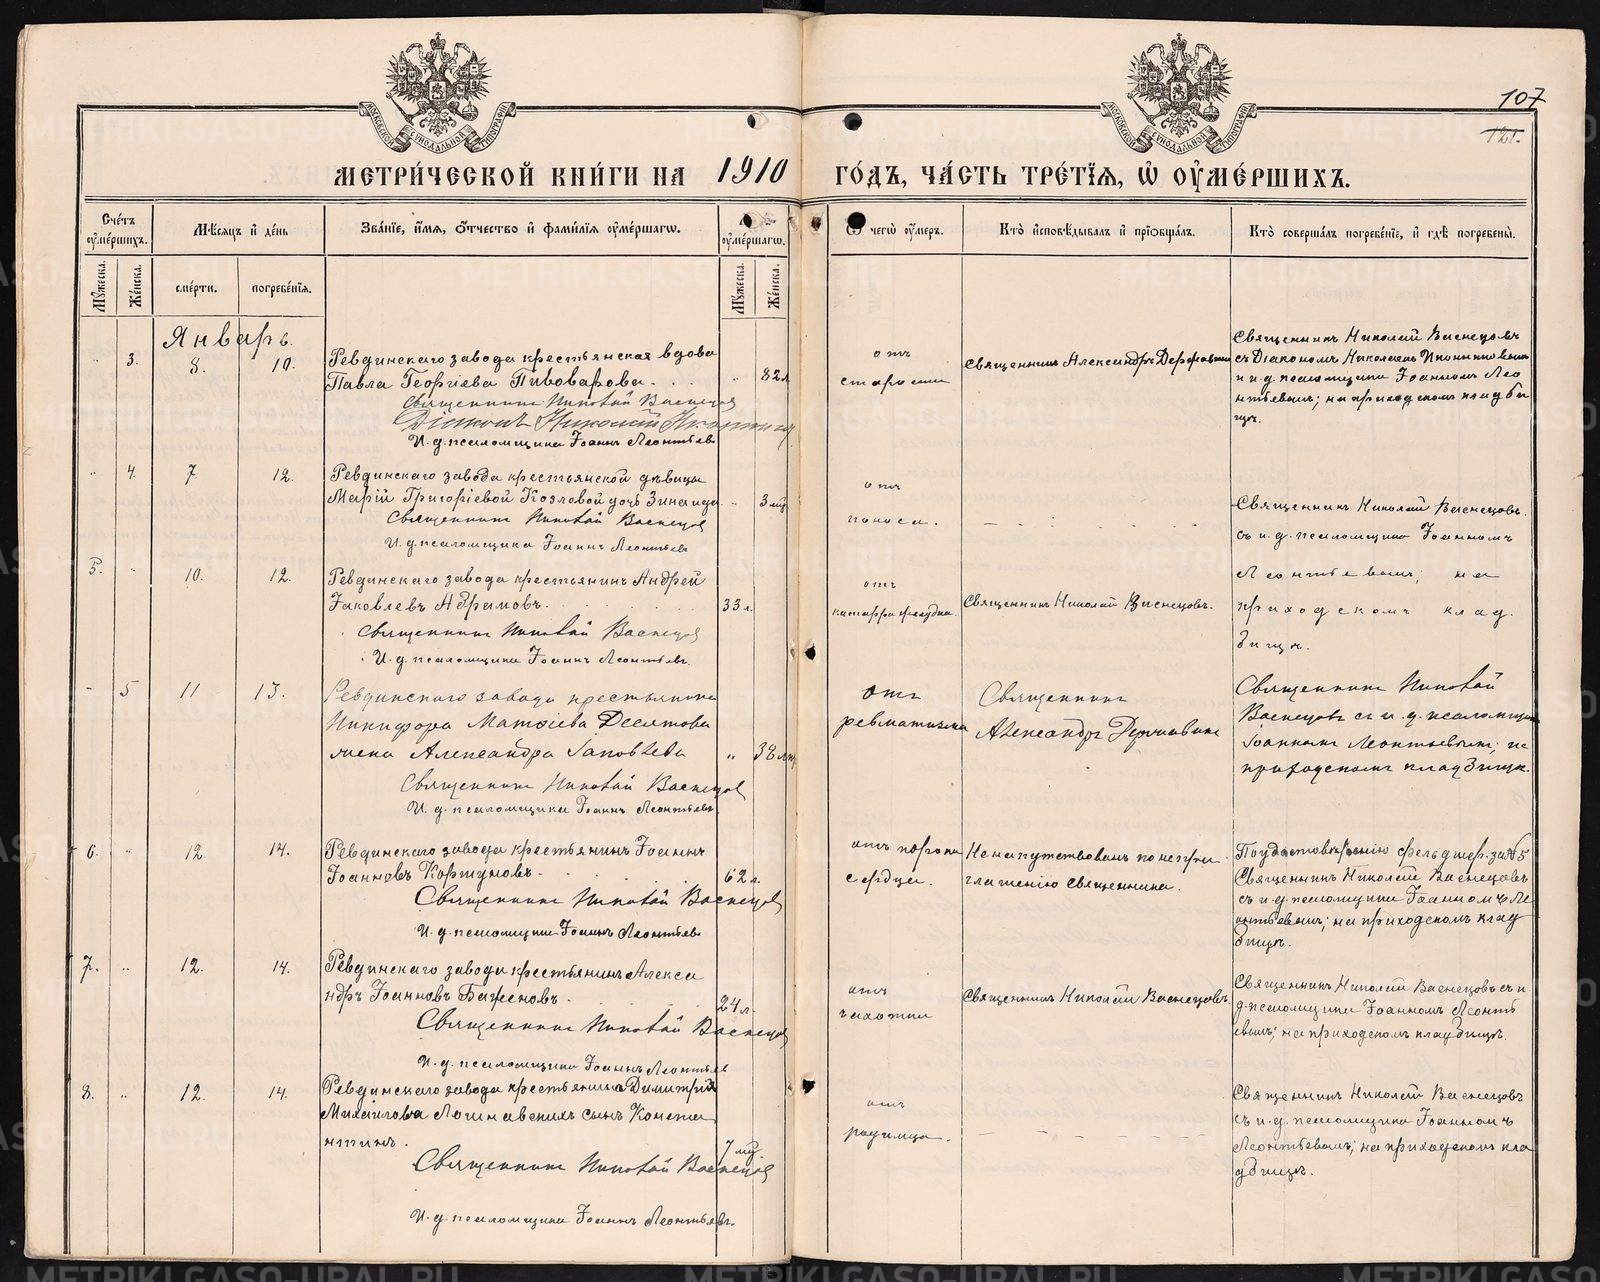 107
121.
МЕТРИ́ЧЕСКОЙ КНИ́ГИ НА 1910 ГО́ДЪ, ЧА́СТЬ ТРЕ́ТІѦ, Ѽ ОУМЕ́РШИХЪ.
Сче́тъ оумершихъ.
Мѣсяцъ и де́нь
Зва́нїе, и́мя, о́тчество и фами́лїя оуме́ршагѡ.
оуме́ршагѡ.
чегѡ̀ оу́меръ.
Кто̀ и́сповѣдывалъ и прїобща́лъ.
Кто̀ соверша́лъ погребе́нїе, и гдѣ̀ погребены̀.
Му́жеска.
Же́нска.
сме́рти.
погребе́нїя.
Му́жеска.
Же́нска.
Январь.
" 3. 8. 10.
Ревдинскаго завода крестьянская вдова
Павла Георгіева Пивоварова. " 82 л
Священникъ Николай Васнецов
Діаконъ Николай
И. д. псаломщика Іоаннъ Леонтьев
отъ
старости
Священникъ Александръ
Священникъ Николай Васнецовъ
съ Діакономъ Николаемъ
и и. д. псаломщика Іоанномъ Лео
нтьевымъ; на приходскомъ кладби
щѣ.
" 4. 7. 12.
Ревдинскаго завода крестьянской дѣвицы
Маріи Григоріевой Козловой дочь Зинаида " 3 мѣс.
Священникъ Николай Васнецов
И. д. псаломщика Іоаннъ Леонтьев
отъ
поноса.
Священникъ Николай Васнецовъ
съ и. д. псаломщика Іоанномъ
Леонтьевымъ; на
приходскомъ клад
бищѣ.
5. " 10. 12.
Ревдинскаго завода крестьянинъ Андрей
Іаковлевъ Абрамовъ. 33 л.
Священникъ Николай Васнецов
И. д. псаломщика Іоаннъ Леонтьев.
отъ
катарра желудка.
Священникъ Николай Васнецовъ.
" 5 11 13.
Ревдинскаго завода крестьянина
Никифора Матѳіева Десятова
жена Александра Іаковлева " 38 лѣт
Священникъ Николай Васнецов
И. д. псаломщика Іоаннъ Леонтьевъ
отъ
ревматизма
Священникъ
Александръ
Священникъ Николай
Васнецовъ съ и. д. псаломщика
Іоанномъ Леонтьевымъ; на
приходскомъ кладбищѣ.
6. " 12 14.
Ревдинскаго завода крестьянинъ Іоаннъ
Іоанновъ Коршуновъ. 62 л.
Священникъ Николай Васнецов
И. д. псаломщика Іоаннъ Леонтьев
отъ порока
сердца.
Не напутствованъ по непри
глашенію священника.
По удостовѣренію фельдшер. за № 5
Священникъ Николай Васнецовъ
съ и. д. псаломщика Іоанномъ Ле
онтьевымъ; на приходскомъ клад
бищѣ.
7. " 12. 14.
Ревдинскаго завода крестьянинъ Алекса
ндръ Іоанновъ Баженовъ. 24 л.
Священникъ Николай Васнецов
И. д. псаломщика Іоаннъ Леонтьев
отъ
чахотки
Священникъ Николай Васнецовъ.
Священникъ Николай Васнецовъ съ и.
д. псаломщика Іоанномъ Леонтъ
евымъ; на приходскомъ кладбищѣ.
8. " 12. 14.
Ревдинскаго завода крестьянина Димитрія
Михайлова сынъ Конста
нтинъ. 7 мѣс.
Священникъ Николай Васнецов
И. д. псаломщика Іоаннъ Леонтьевъ.
отъ
родимца.
Священникъ Николай Васнецовъ
съ и. д. псаломщика Іоанномъ
Леонтьевымъ; на приходскомъ кла
дбищѣ.
METRIKI.GASO-URAL.RU